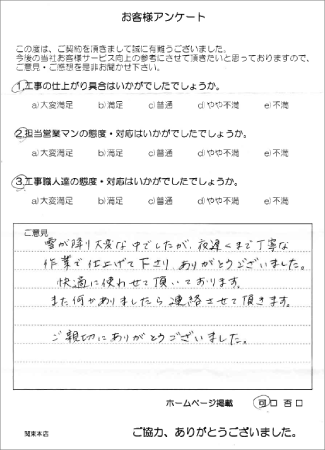 お客様アンケート
この度は、ご契約を頂きまして誠に有難うございました。
今後の当社お客様サービス向上の参考にさせて頂きたいと思っておりますので、
ご意見・ご感想を是非お聞かせ下さい。
1.工事の仕上がり具合はいかがでしたでしょうか。
a)大変満足 b)満足 c)普通 d)やや不満 e)不満
2.担当営業マンの態度・対応はいかがでしたでしょうか。
a)大変満足 b)満足 c)普通 d)やや不満 e)不満
3.工事職人達の態度・対応はいかがでしたでしょうか。
a)大変満足 b)満足 c)普通 d)やや不満 e)不満
ご意見
雪が降り大変な中でしたが、夜遅くまで丁寧な
作業で仕上げて下さり、ありがとうございました。
快適に使わせて頂いております。
また何かありましたら連絡させて頂きます。
ご親切にありがとうございました。
ホームページ掲載 可□ 否□
関東本店
ご協力、ありがとうございました。